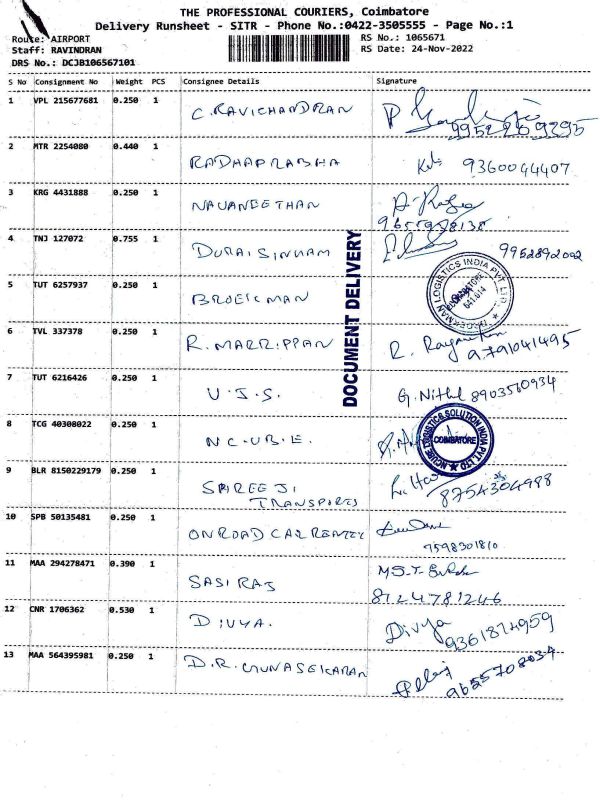 THE PROFESSIONAL COURIERS, Coimbatore
Delivery Runsheet - SITR - Phone No.:0422-3505555 - Page No.:1
Route: AIRPORT RS No.: 1065671
Staff: RAVINDRAN RS Date: 24-Nov-2022
DRS No.: DCJB106567101
S No Consignment No Weight PCS Consignee Details Signature
1 VPL 215677681 0.250 1 C.RAVICHANDRAN
9952209295
2 MTR 2254080 0.440 1 RADHAPRABHA 9360044407
3 KRG 4431888 0.250 1 NAVANEETHAN
4 TNJ 127072 0.755 1 DURAISINHAM 9952892002
5 TUT 6257937 0.250 1 BROEKMAN
BROEKMAN LOGISTICS INDIA PVT LTD
COIMBATORE
641 014
6 TVL 337378 0.250 1 R.MARRIPPAN R.
9791041495
7 TUT 6216426 0.250 1 U.J.S. G.Nithil 8903510934
8 TCG 40308022 0.250 1 N.C.U.B.E.
NCUBE LOGISTICS SOLUTION INDIA PVT LTD
COIMBATORE
9 BLR 8150229179 0.250 1 SRIREEJI
TRANSPORTS 8754304998
10 SPB 50135481 0.250 1 ONROAD CAR RENTEL
7598301810
11 MAA 294278471 0.390 1 SASIRAJ
8124781246
12 CNR 1706362 0.530 1 DIVYA. Divya
9361874959
13 MAA 564395981 0.250 1 D.R.GUNASEKARAN
9655708034
DOCUMENT DELIVERY